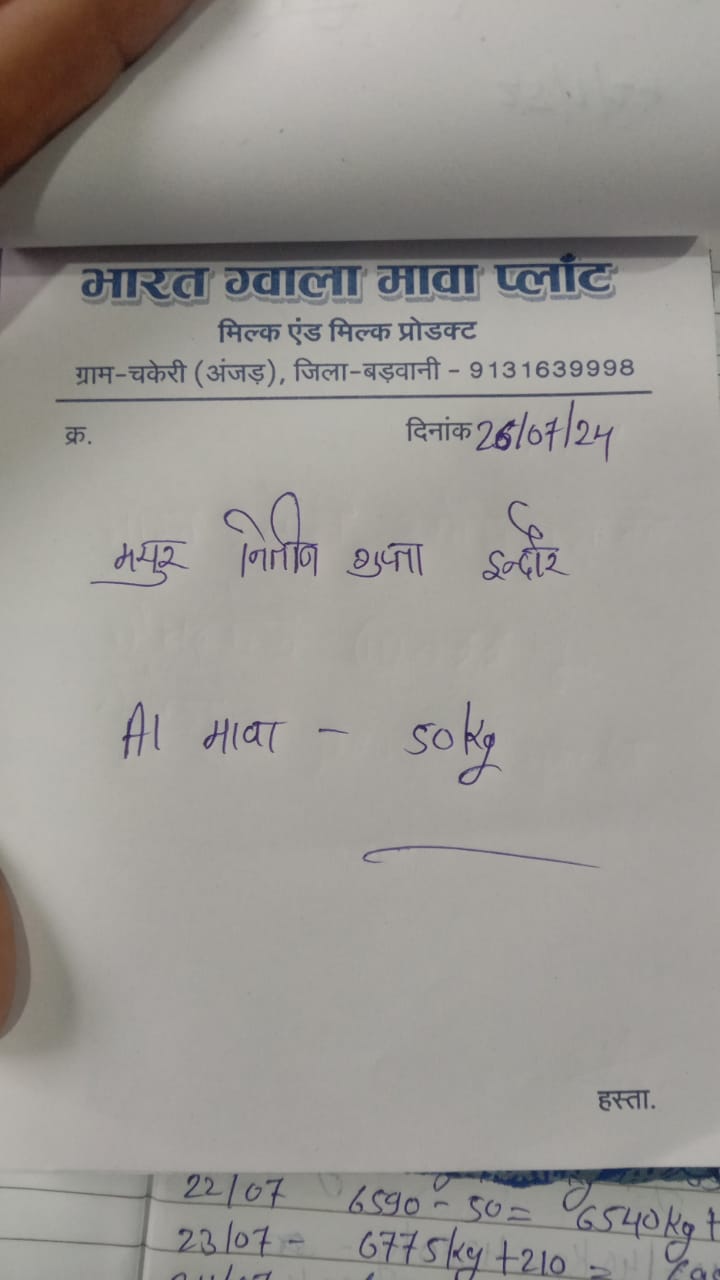 भारत ग्वाला मावा प्लाँट
मिल्क एंड मिल्क प्रोडक्ट
ग्राम-चकेरी (अंजड़), जिला-बड़वानी - 9131639998
क्र. दिनांक 26/07/24
मयुर नितीन गुप्ता इन्दौर
A1 मावा - 50kg
हस्ता.
22/07 6590 - 50 = 6540kg +
23/07 - 6775kg + 210 =